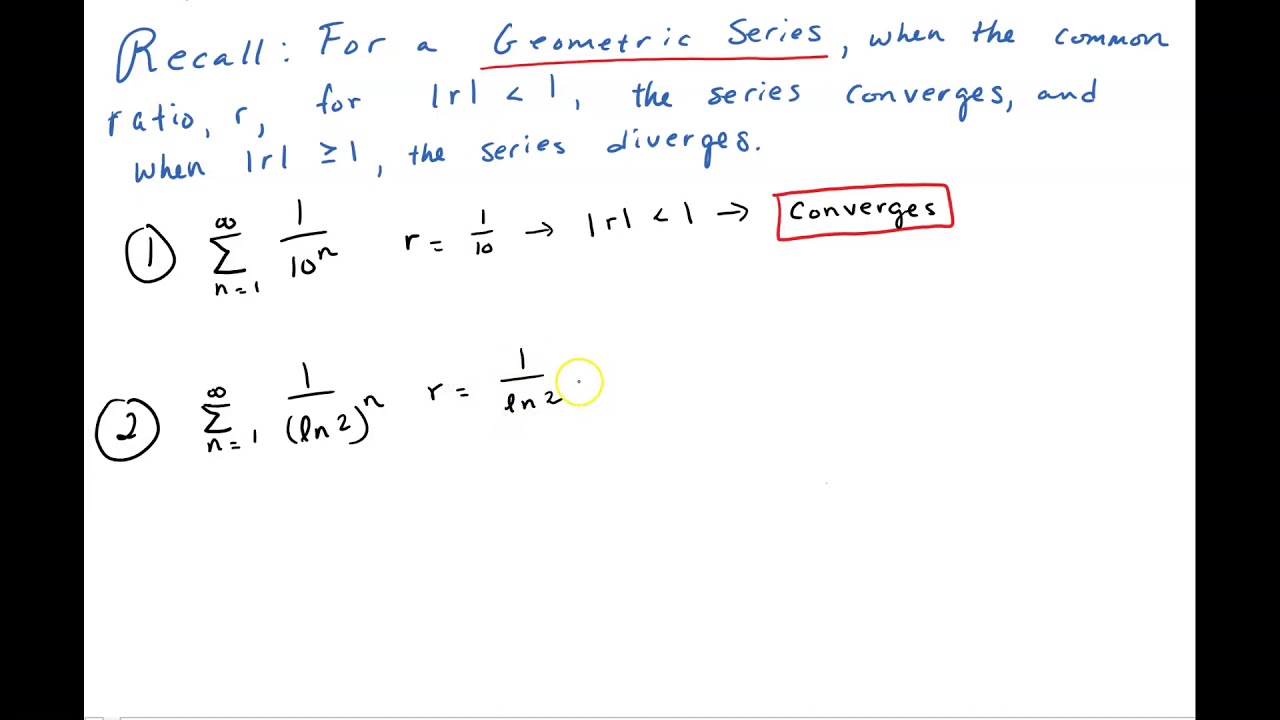 Recall: For a Geometric Series, when the common
ratio, r, for |r| < 1, the series converges, and
when |r| ≥ 1, the series diverges.
① ∑_{n=1}^{∞} 1/10^n r = 1/10 → |r| < 1 → Converges
② ∑_{n=1}^{∞} 1/(ln 2)^n r = 1/ln 2